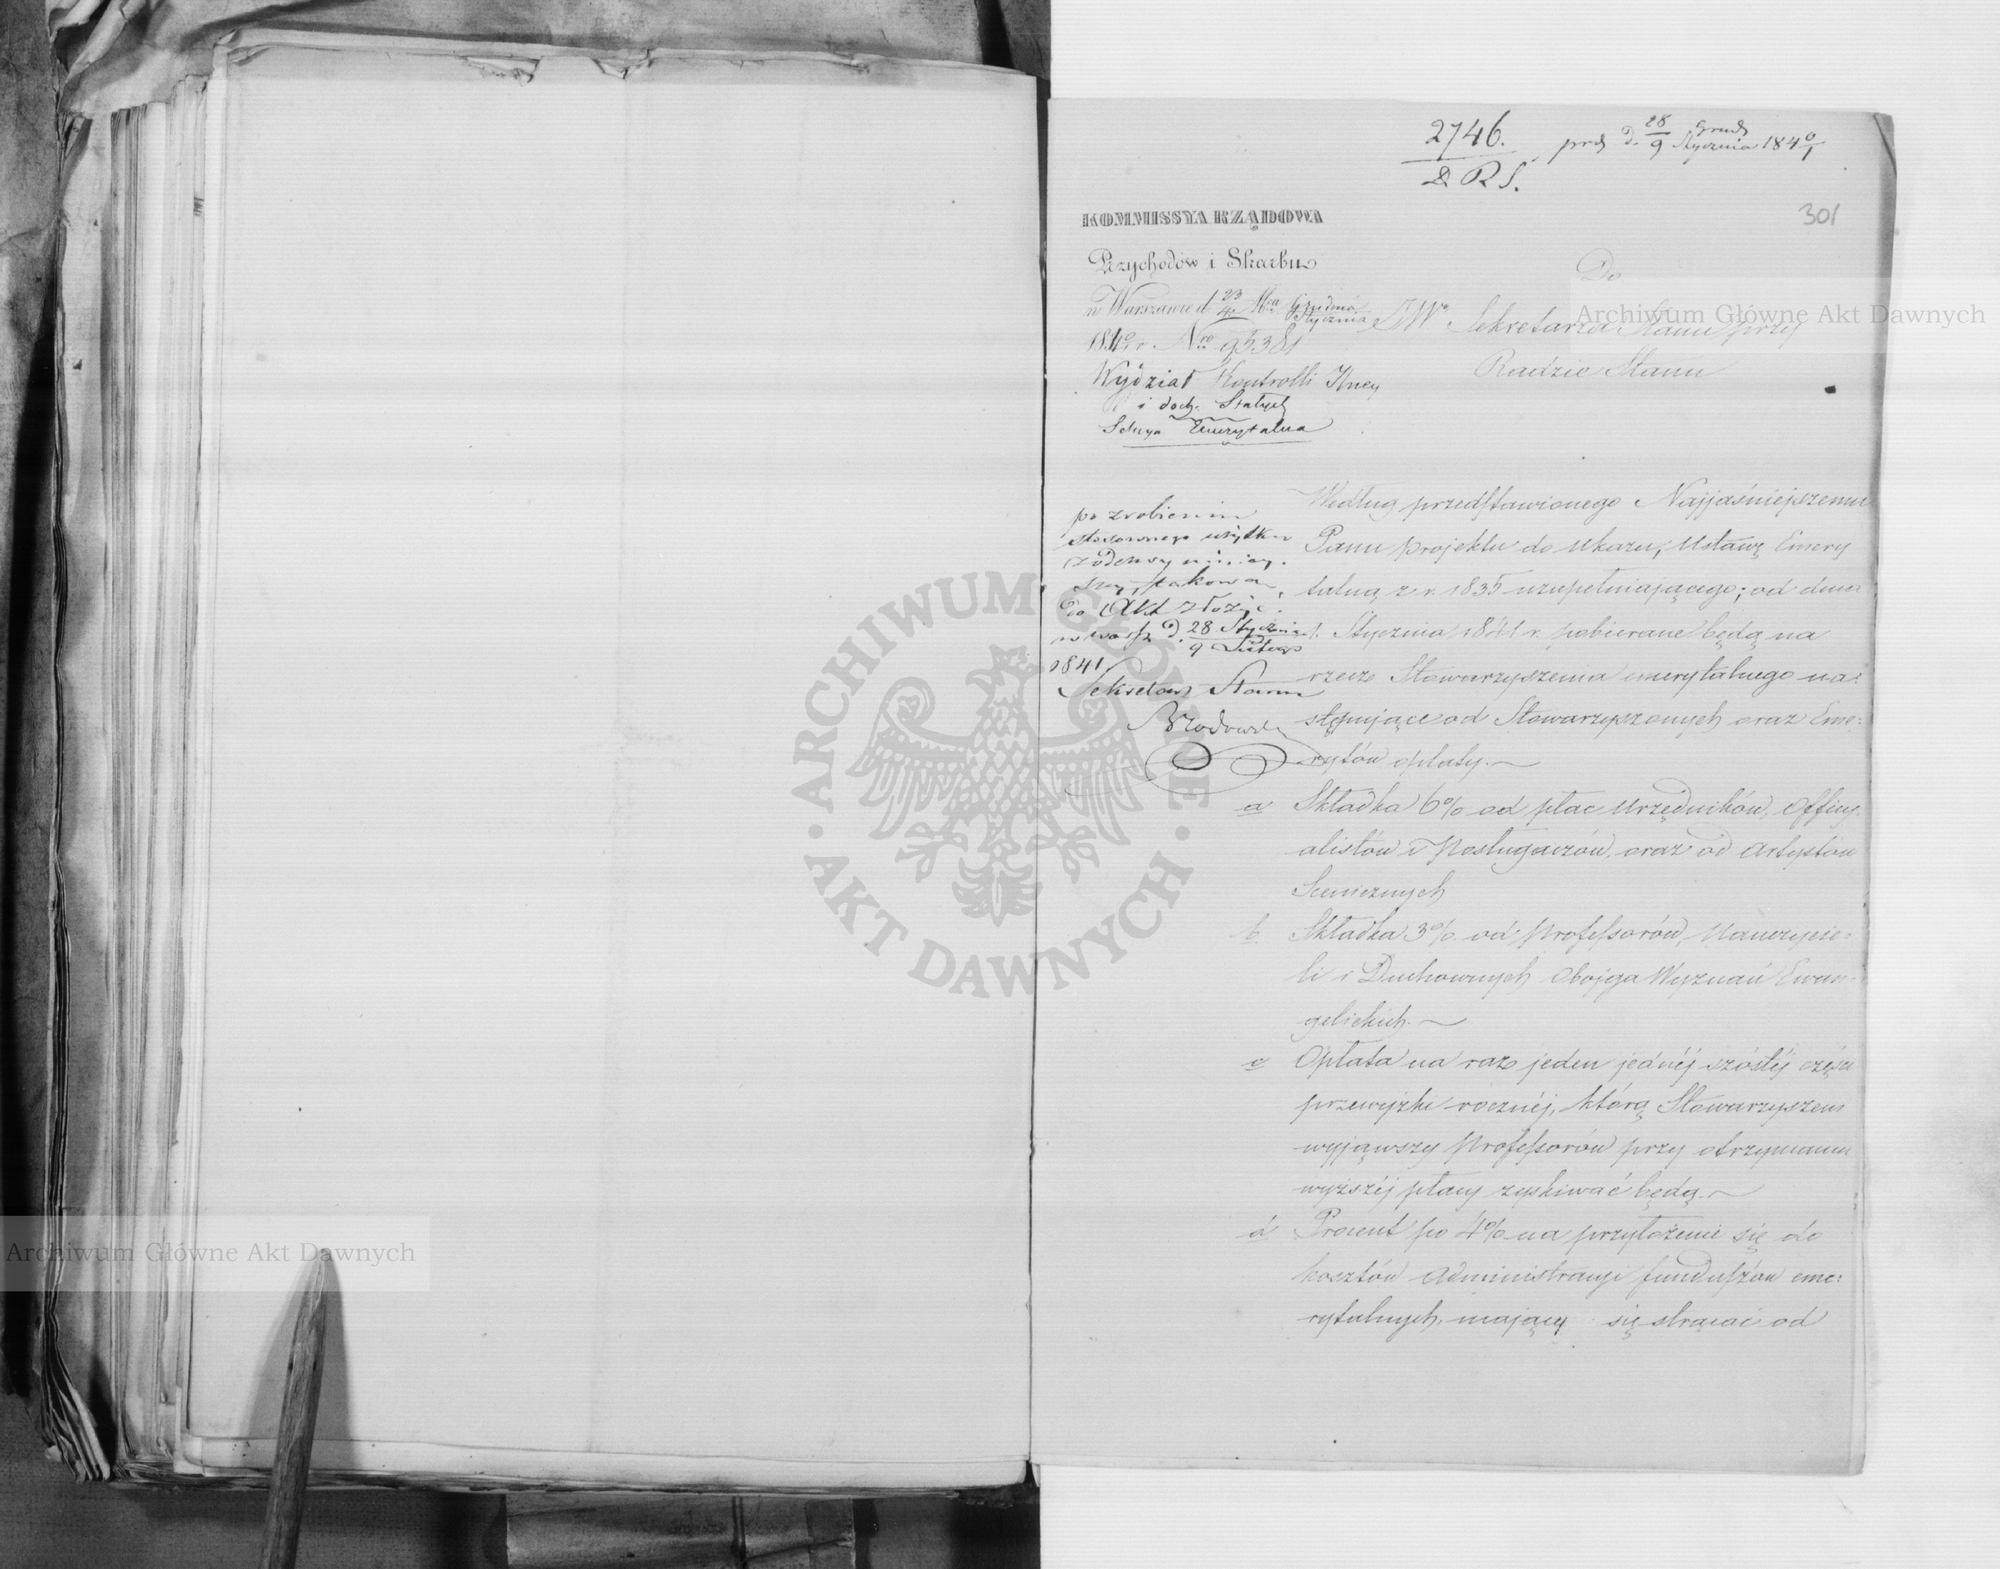 2746.
D. R. S.
prez d. 28/9 Grud/Stycznia 1840/1
301
KOMMISSYA RZĄDOWA
Przychodów i Skarbu
w Warszawie d. 23/4 Mca Grudnia/Stycznia
1840/1 r. Nro 95381
Wydział Kontrolli
i doch. Stałych
Sekcya Emerytalna
Do
JWo Sekretarza Stanu przy
Radzie Stanu
po zrobieniu
stosownego użytku
z odezwy niniej-
szej, takową
do Akt złożyć.
w Warsz. d. 28 Stycznia/9 Lutego
1841
Sekretarz Stanu
Brodowski
Według przedstawionego Najjaśniejszemu
Panu projektu do Ukazu, Ustawę Emery
talną z r. 1835 uzupełniającego; od dnia
1. Stycznia 1841 r. pobierane będą na
rzecz Stowarzyszenia emerytalnego na:
stępujące od Stowarzyszonych oraz Eme:
rytów opłaty.—
a Składka 6% od płac Urzędników, Officy
alistów i Posługaczów, oraz od Artystów
Scenicznych
b. Składka 3% od Professorów, Nauczycie:
li i Duchownych obojga Wyznań Ewan-
gelickich.—
c Opłata na raz jeden jednéj szóstéj części
przewyżki rocznéj, którą Stowarzyszeni
wyjąwszy Professorów przy otrzymaniu
wyższéj płacy zyskiwać będą.—
d Procent po 4% na przyłożenie się do
kosztów Administracyi funduszów eme:
rytalnych, mający się strącać od
Archiwum Główne Akt Dawnych
Archiwum Główne Akt Dawnych
ARCHIWUM GŁÓWNE · AKT DAWNYCH ·